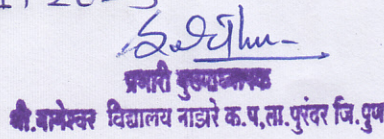 प्रभारी मुख्याध्यापक
श्री.वागेश्वर विद्यालय नाझरे क.प.ता.पुरंदर जि.पुणे